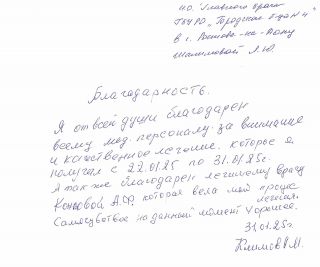 И.О. Главного врача
ГБУ РО „Городская б-ца N4"
в г. Ростове-на-Дону
Шалимовой Л.Ю.
Благодарность.
Я от всей души благодарен
всему мед. персоналу за внимание
и качественное лечение, которое я
получил с 22.01.25 по 31.01.25г.
Я так же благодарен лечащему врачу
А.Ф. которая вела мой процес
лечения.
Самочувствие на данный момент хорошее.
31.01.25г.
Климов В.М.